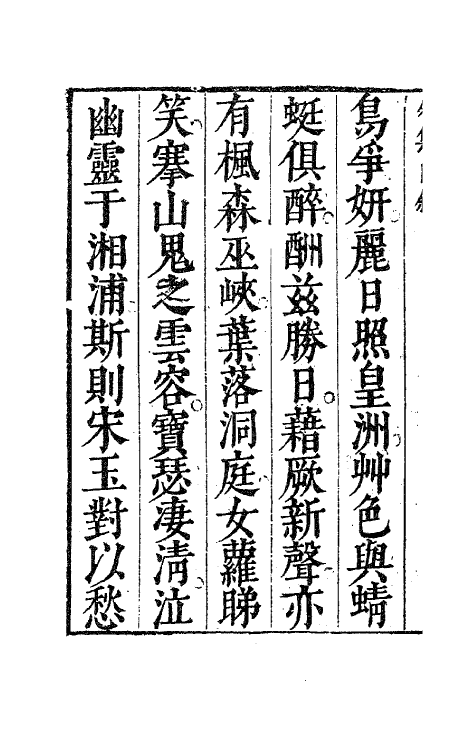 鳥爭妍麗日照皇洲艸色與蜻
蜓俱醉酬兹勝日藉厥新聲亦
有楓森巫峽葉落洞庭女蘿睇
笑搴山鬼之雲容寶瑟凄清泣
幽靈于湘浦斯則宋玉對以愁